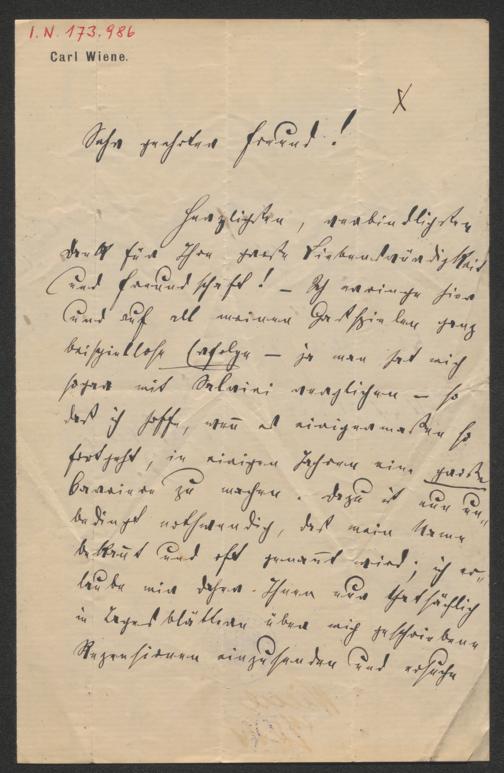 I.N. 173.986
Carl Wiene.
X
Sehr geehrter Freund!
Herzlichsten, verbindlichsten
Dank für Ihre große Liebenswürdigkeit
und Freundschaft! – Ich erringe hier
und auf all meinen Gastspielen ganz
beispiellose Erfolge – ja man hat mich
sogar mit Salvini verglichen – so
daß ich hoffe, wenn es einigermaßen so
fortgeht, in einigen Jahren eine große
Carriere zu machen. Dazu ist nun un-
bedingt nothwendig, daß mein Name
bekannt und oft genannt wird; ich er-
laube mir daher Ihnen nun thatsächlich
in Tagesblättern über mich geschriebene
Rezensionen einzusenden und ersuche